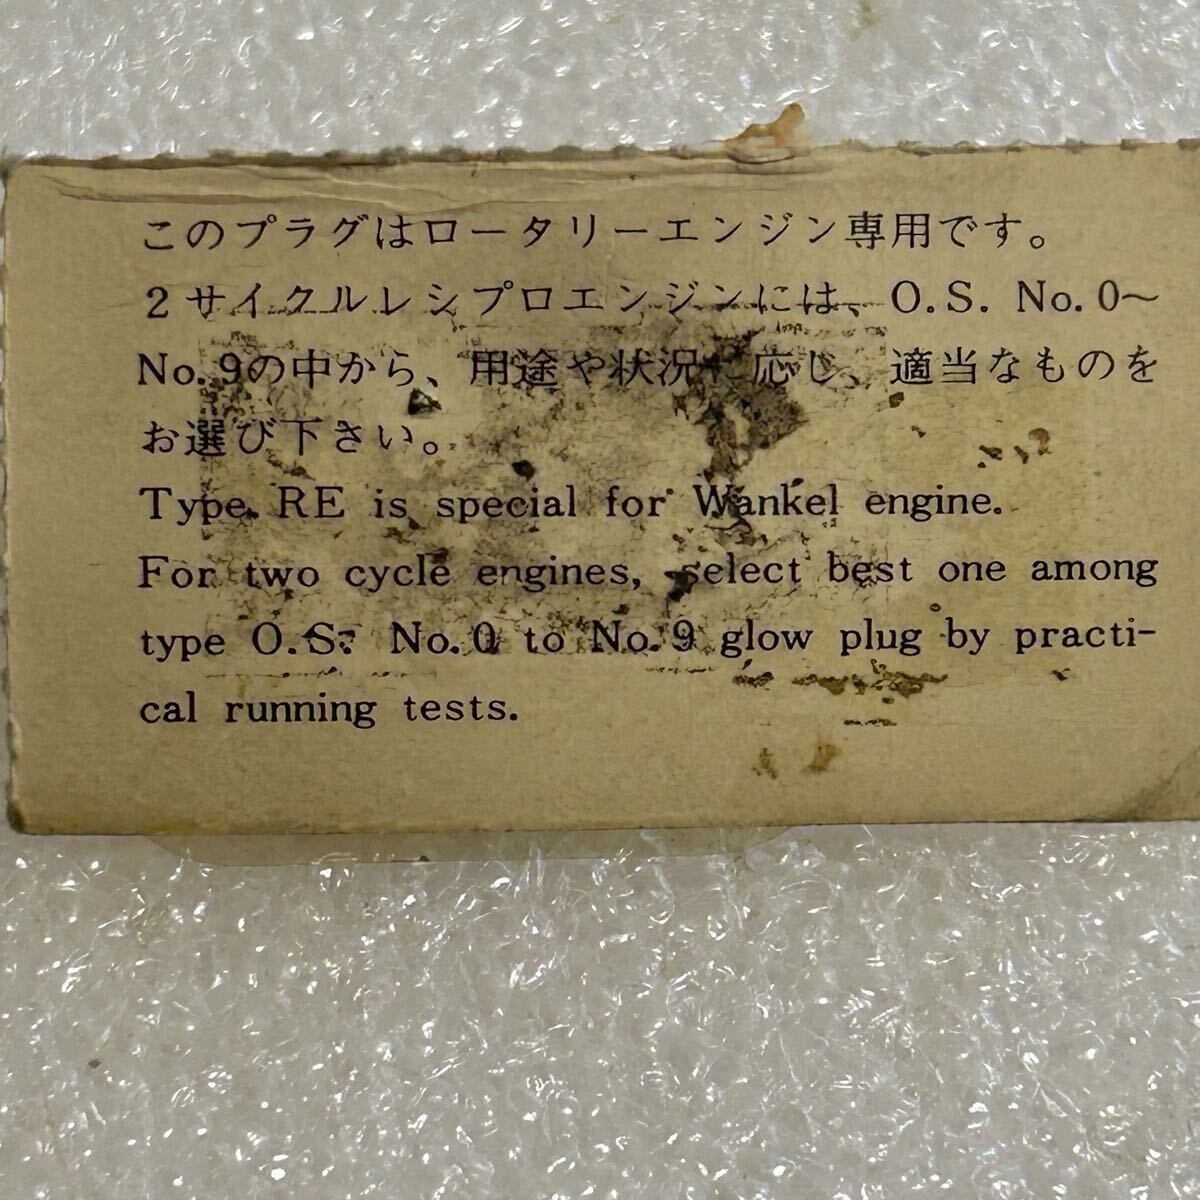 このプラグはロータリーエンジン専用です。
2サイクルレシプロエンジンには、O.S. No.0〜
No.9の中から、用途や状況に応じ、適当なものを
お選び下さい。
Type RE is special for Wankel engine.
For two cycle engines, select best one among
type O.S. No.0 to No.9 glow plug by practi-
cal running tests.